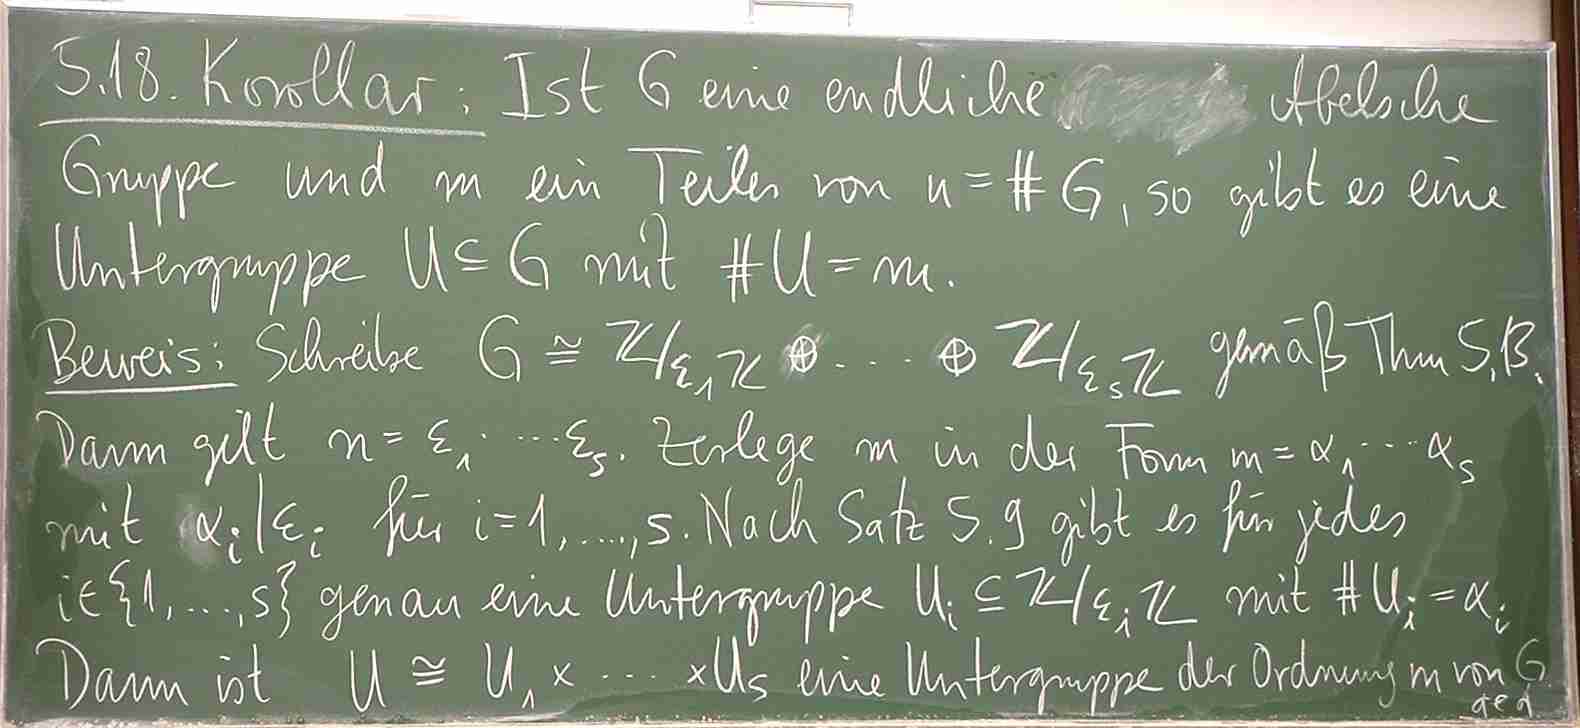 5.18. Korollar: Ist G eine endliche Abelsche
Gruppe und m ein Teiler von n = # G, so gibt es eine
Untergruppe U ⊆ G mit #U = m.
Beweis: Schreibe G ≅ ℤ/ε₁ℤ ⊕ ... ⊕ ℤ/εₛℤ gemäß Thm 5.13.
Dann gilt n = ε₁· ··· εₛ. Zerlege m in der Form m = α₁ ··· αₛ
mit αᵢ|εᵢ für i=1,...,s. Nach Satz 5.9 gibt es für jedes
i∈{1,...,s} genau eine Untergruppe Uᵢ ⊆ ℤ/εᵢℤ mit #Uᵢ = αᵢ
Dann ist U ≅ U₁ × ... × Uₛ eine Untergruppe der Ordnung m von G
qed